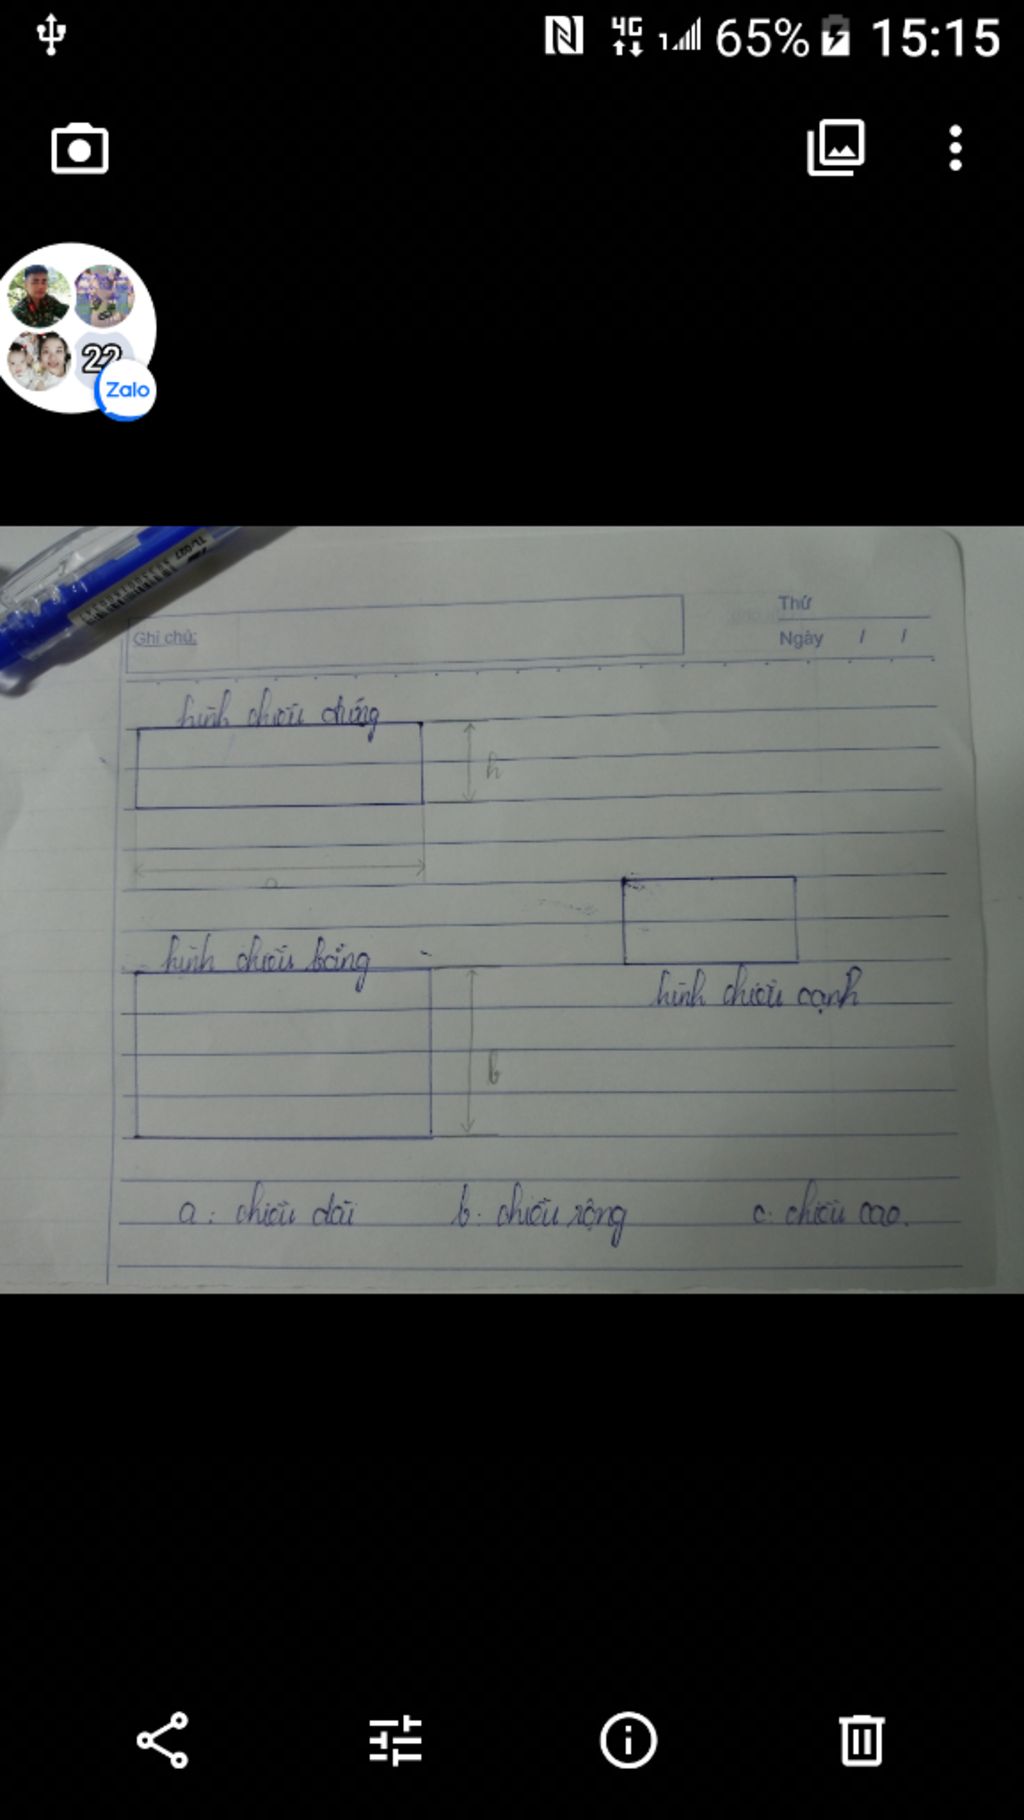 65% 15:15
22
Zalo
TL-027
Thứ
Ghi chú:
Ngày / /
hình chiếu đứng
h
a
hình chiếu bằng
hình chiếu cạnh
b
a: chiều dài b: chiều rộng c: chiều cao.